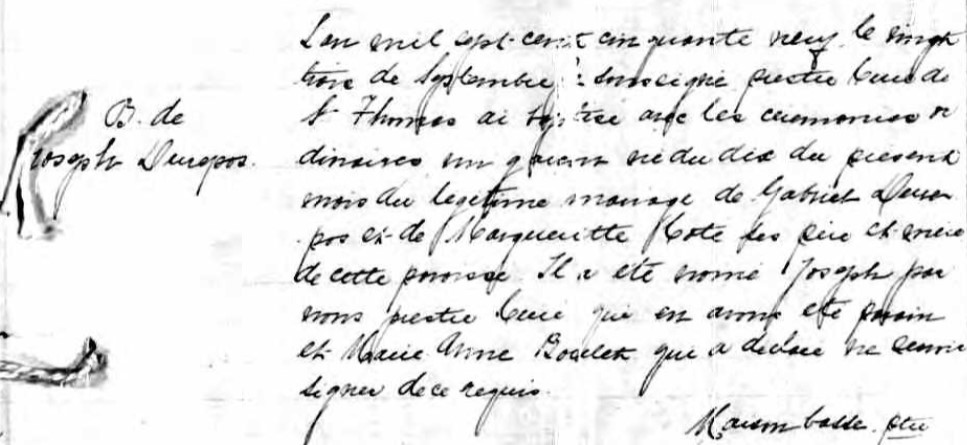 B. de
Joseph Durepos.
L'an mil sept-cent cinquante neuf le vingt
trois de Septembre soussigné prestre Curé de
St Thomas ai baptisé avec les ceremonies or
dinaires un garcon né du dix du présent
mois du legitime mariage de Gabriel Dure
pos et de Margueritte Coté ses père et mère
de cette paroisse Il a eté nomé Joseph par
nous prestre Curé qui en avons eté parain
et Marie Anne qui a declaré ne savoir
signer de ce requis.
Maisonbasse ptre